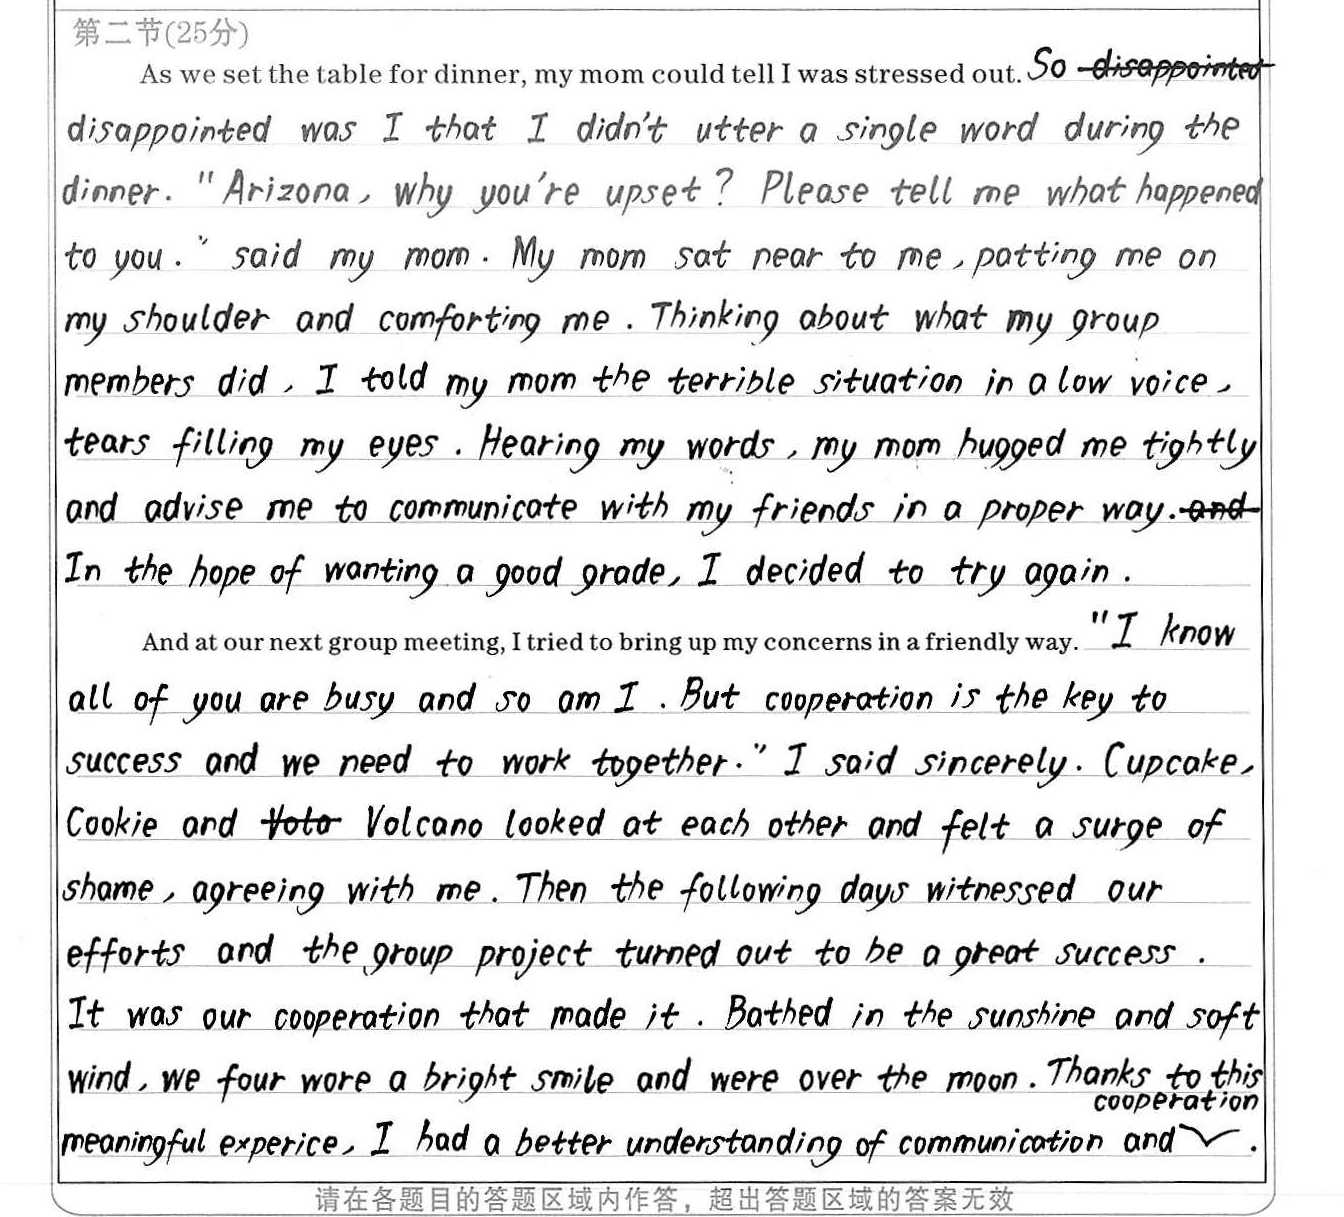 第二节(25分)
As we set the table for dinner, my mom could tell I was stressed out. So disappointed
disappointed was I that I didn't utter a single word during the
dinner. "Arizona, why you're upset? Please tell me what happened
to you." said my mom. My mom sat near to me, patting me on
my shoulder and comforting me. Thinking about what my group
members did, I told my mom the terrible situation in a low voice,
tears filling my eyes. Hearing my words, my mom hugged me tightly
and advise me to communicate with my friends in a proper way. and
In the hope of wanting a good grade, I decided to try again.
And at our next group meeting, I tried to bring up my concerns in a friendly way. "I know
all of you are busy and so am I. But cooperation is the key to
success and we need to work together." I said sincerely. Cupcake,
Cookie and Volcano looked at each other and felt a surge of
shame, agreeing with me. Then the following days witnessed our
efforts and the group project turned out to be a great success.
It was our cooperation that made it. Bathed in the sunshine and soft
wind, we four wore a bright smile and were over the moon. Thanks to this
cooperation
meaningful experice, I had a better understanding of communication and .
请在各题目的答题区域内作答，超出答题区域的答案无效